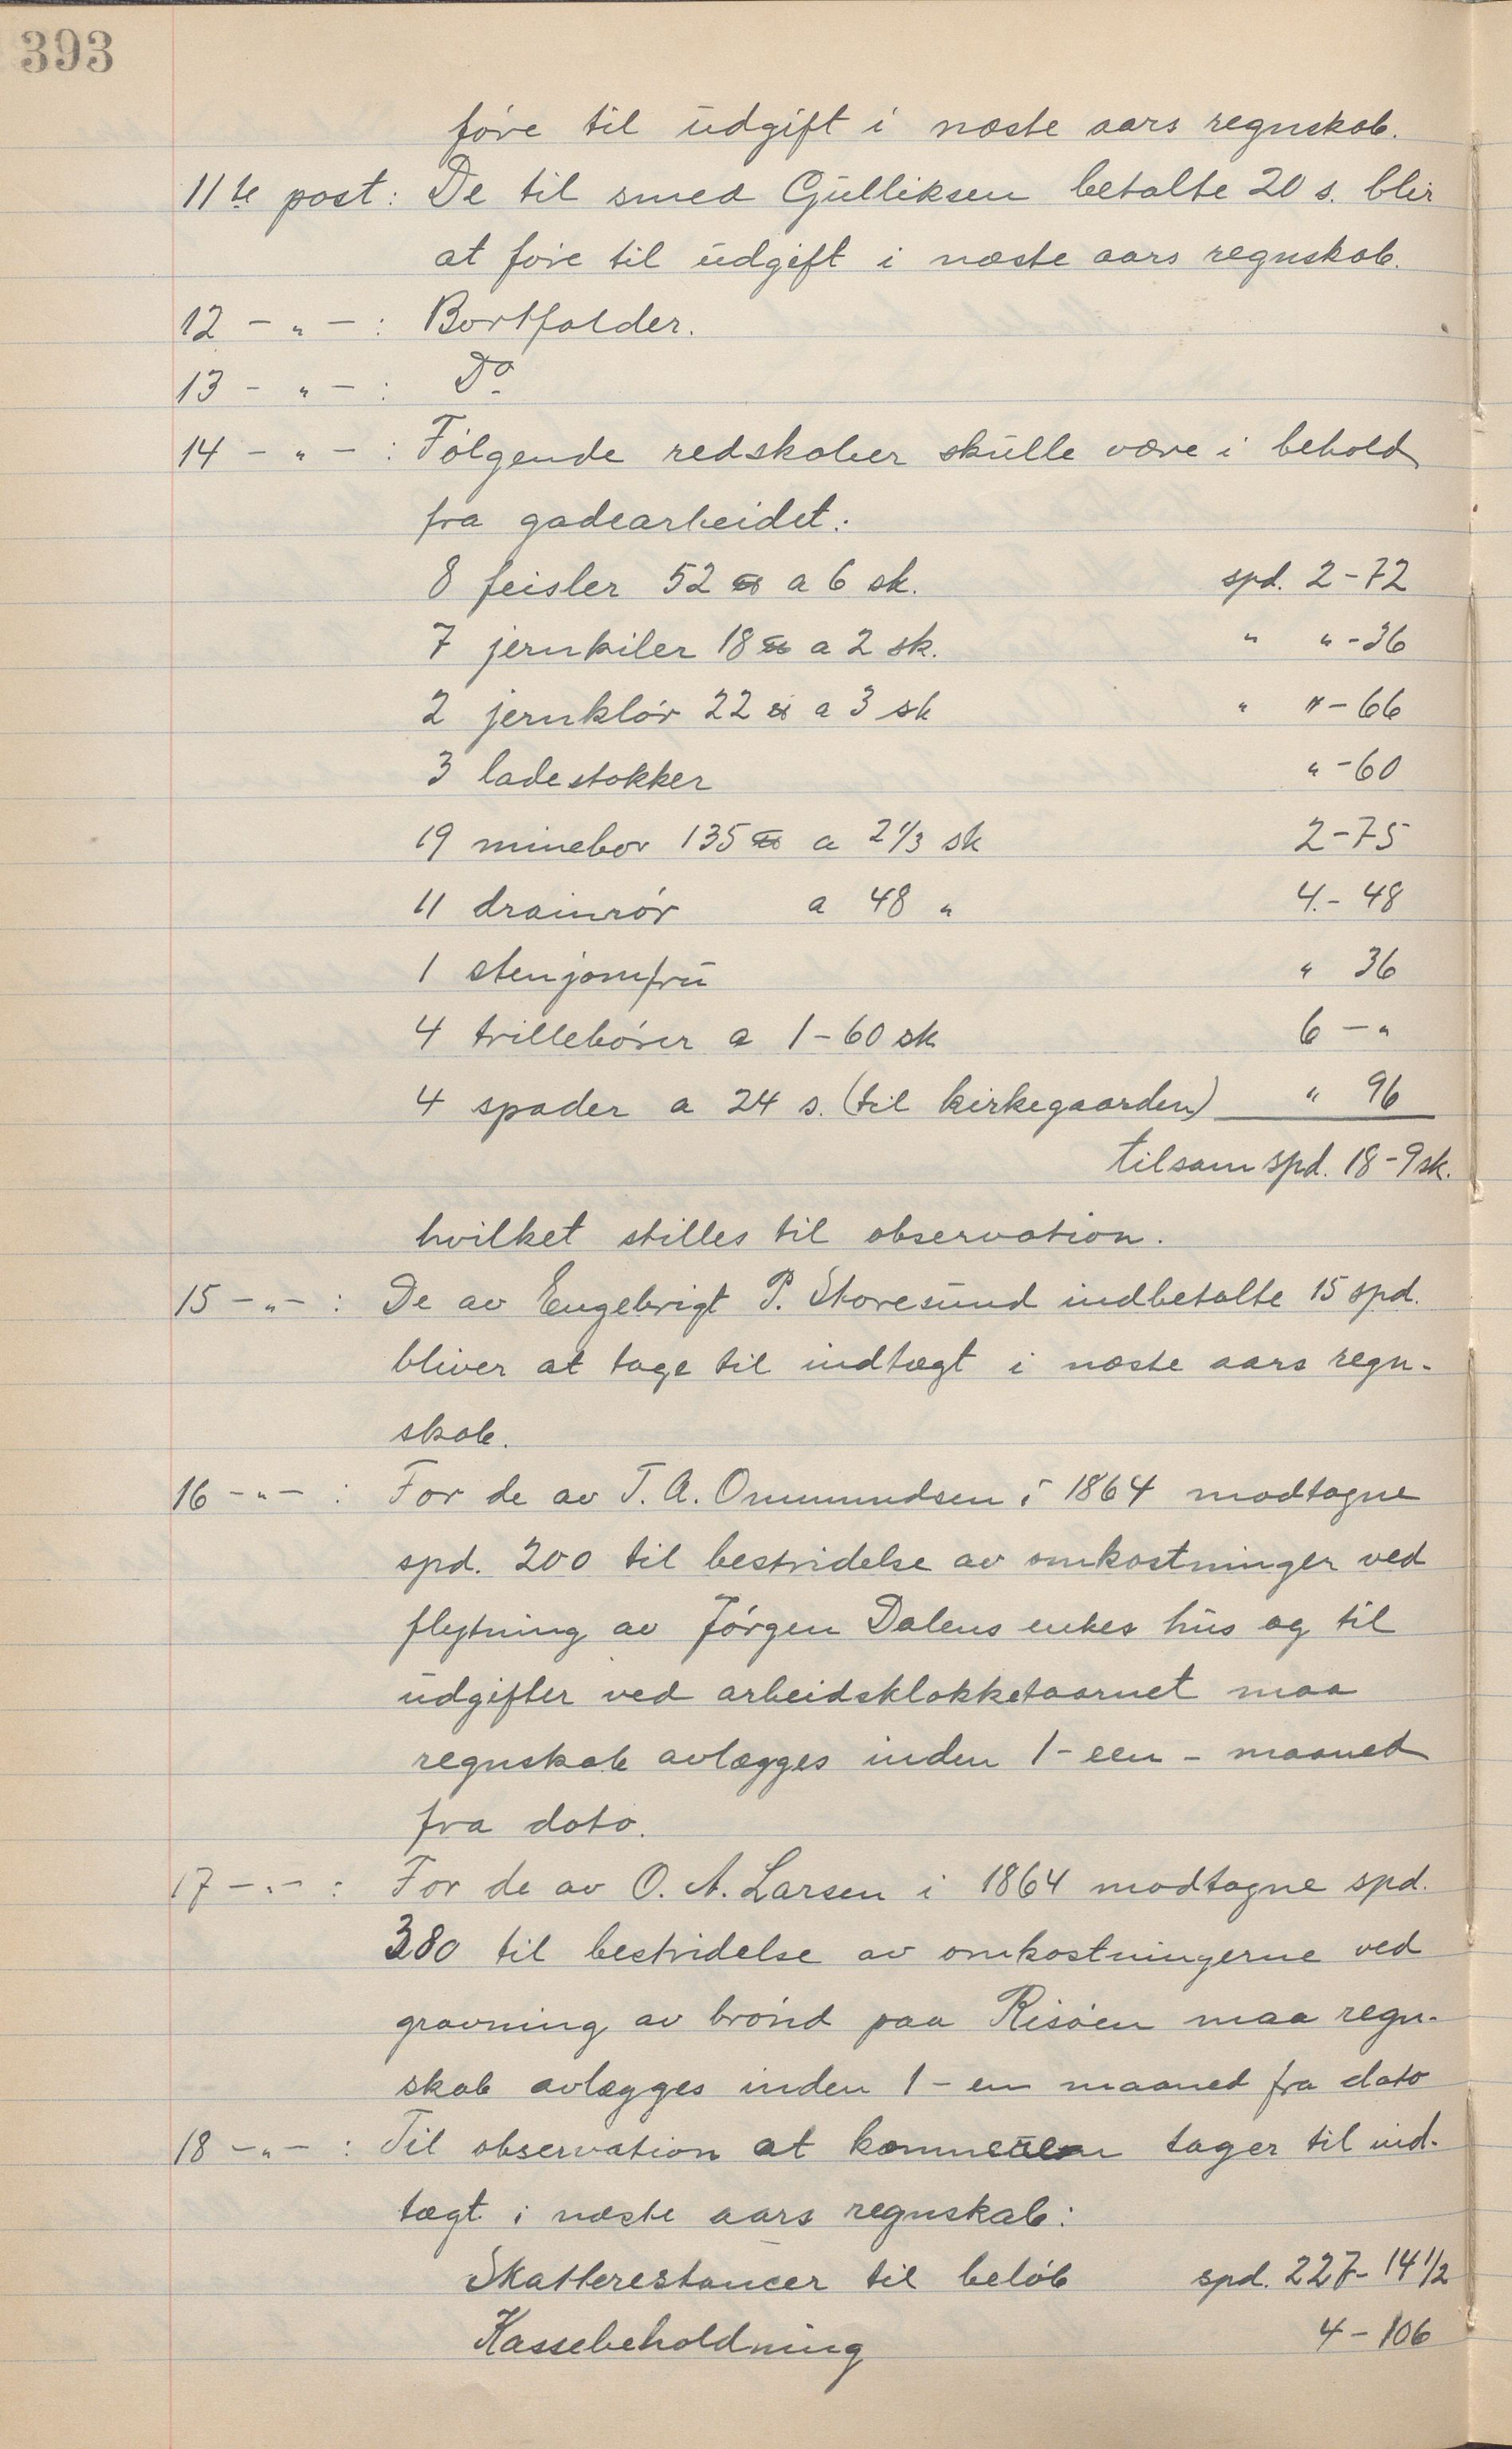 393
føre til udgift i næste aars regnskab.
11te post: De til smed Gulliksen betalte 20 s. blir
at føre til udgift i næste aars regnskab.
12 - " - : Bortfalder.
13 - " - : Do
14 - " - : Følgende redskaber skulle være i behold
fra gadearbeidet:
8 feisler 52 ℔ a 6 sk. spd. 2-72
7 jernkiler 18 ℔ a 2 sk. " " - 36
2 jernklør 22 ℔ a 3 sk " " - 66
3 ladestokker " - 60
19 minebor 135 ℔ a 2 1/3 sk 2-75
11 drainrør a 48 " 4.- 48
1 stenjomfru " 36
4 trillebører a 1-60 sk 6 - "
4 spader a 24 s. (til kirkegaarden) " 96
tilsam spd. 18-9 sk.
hvilket stilles til observation.
15 - " - : De av Engebrigt P. Storesund indbetalte 15 spd.
bliver at tage til indtægt i næste aars regn-
skab.
16 - " - : For de av T. A. Ommundsen i 1864 modtagne
spd. 200 til bestridelse av omkostninger ved
flytning av Jørgen Dalens enkes hus og til
udgifter ved arbeidsklokketaarnet maa
regnskab avlægges inden 1 - een - maaned
fra dato.
17 - " - : For de av O. A. Larsen i 1864 modtagne spd.
380 til bestridelse av omkostningerne ved
gravning av brønd paa Risøen maa regn-
skab avlægges inden 1 - en maaned fra dato
18 - " - : Til observation at tager til ind-
tægt i næste aars regnskab:
Skatterestancer til beløb spd. 227- 14 1/2
Kassebeholdning 4 - 106